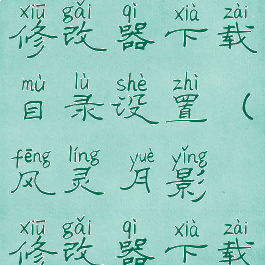 xiū gǎi qì xià zài
修改器下载
mù lù shè zhì
目录设置(
fēng líng yuè yǐng
风灵月影
xiū gǎi qì xià zài
修改器下载